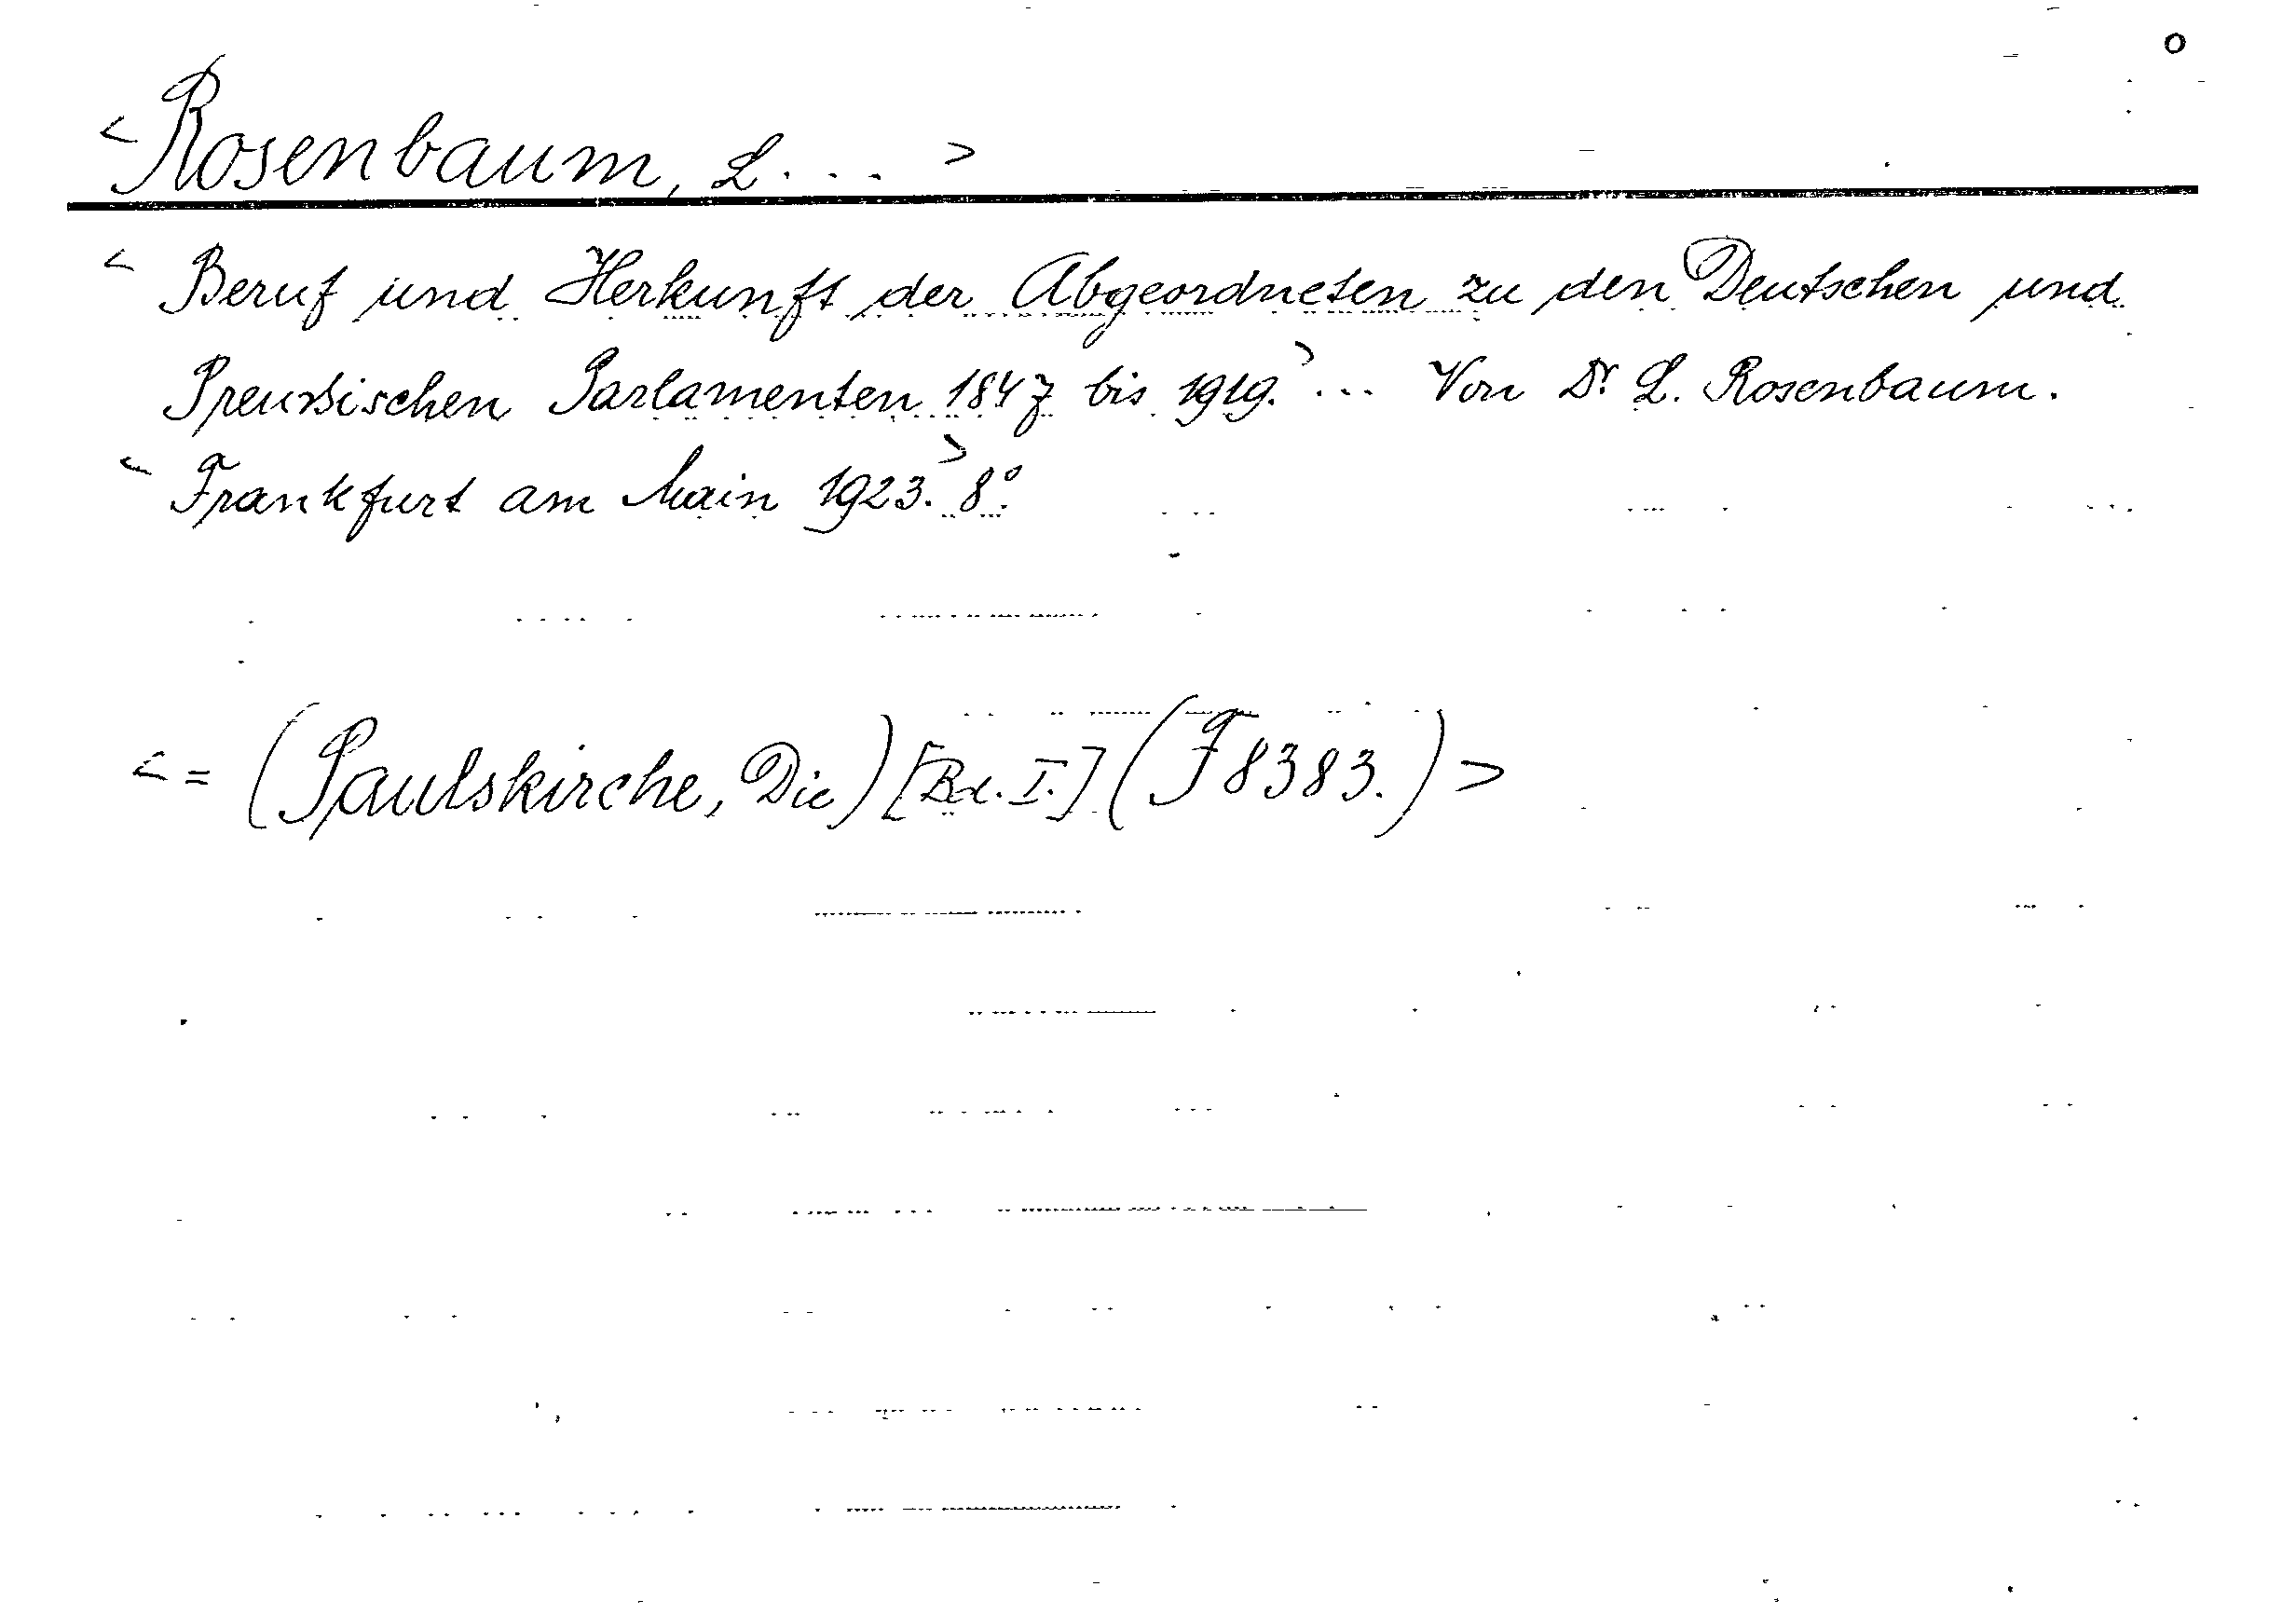 o
<Rosenbaum, L. . . . >
< Beruf und Herkunft der Abgeordneten zu den Deutschen und
Preussischen Parlamenten 1847 bis 1919.> ... Von Dr. L. Rosenbaum.
< Frankfurt am Main 1923.> 8°.
< = (Paulskirche, Die) [Bd. I.] (F 8383.) >